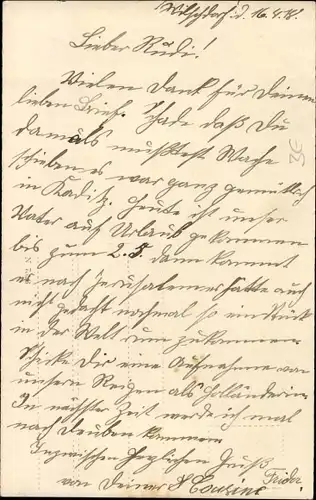 Wilschdorf, d. 16.4.18.
Lieber Rudi!
Vielen Dank für Deinen
lieben Brief. Schade daß Du
damals mußtest Wache
schieben es war ganz gemütlich
in Kaditz. Heute ist unser
Vater auf Urlaub gekommen
bis zum 2.5. dann kommt
er nach Jerusalem er hätte auch
nicht gedacht nochmal so ein Stück
in der Welt rum zukommen.
Schicke Dir eine Aufnahme von
unsern Reigen als Holländerin
In nächster Zeit werde ich mal
nach Deuben kommen
Inzwischen herzlichen Gruß
von Deiner Cousine Frida.